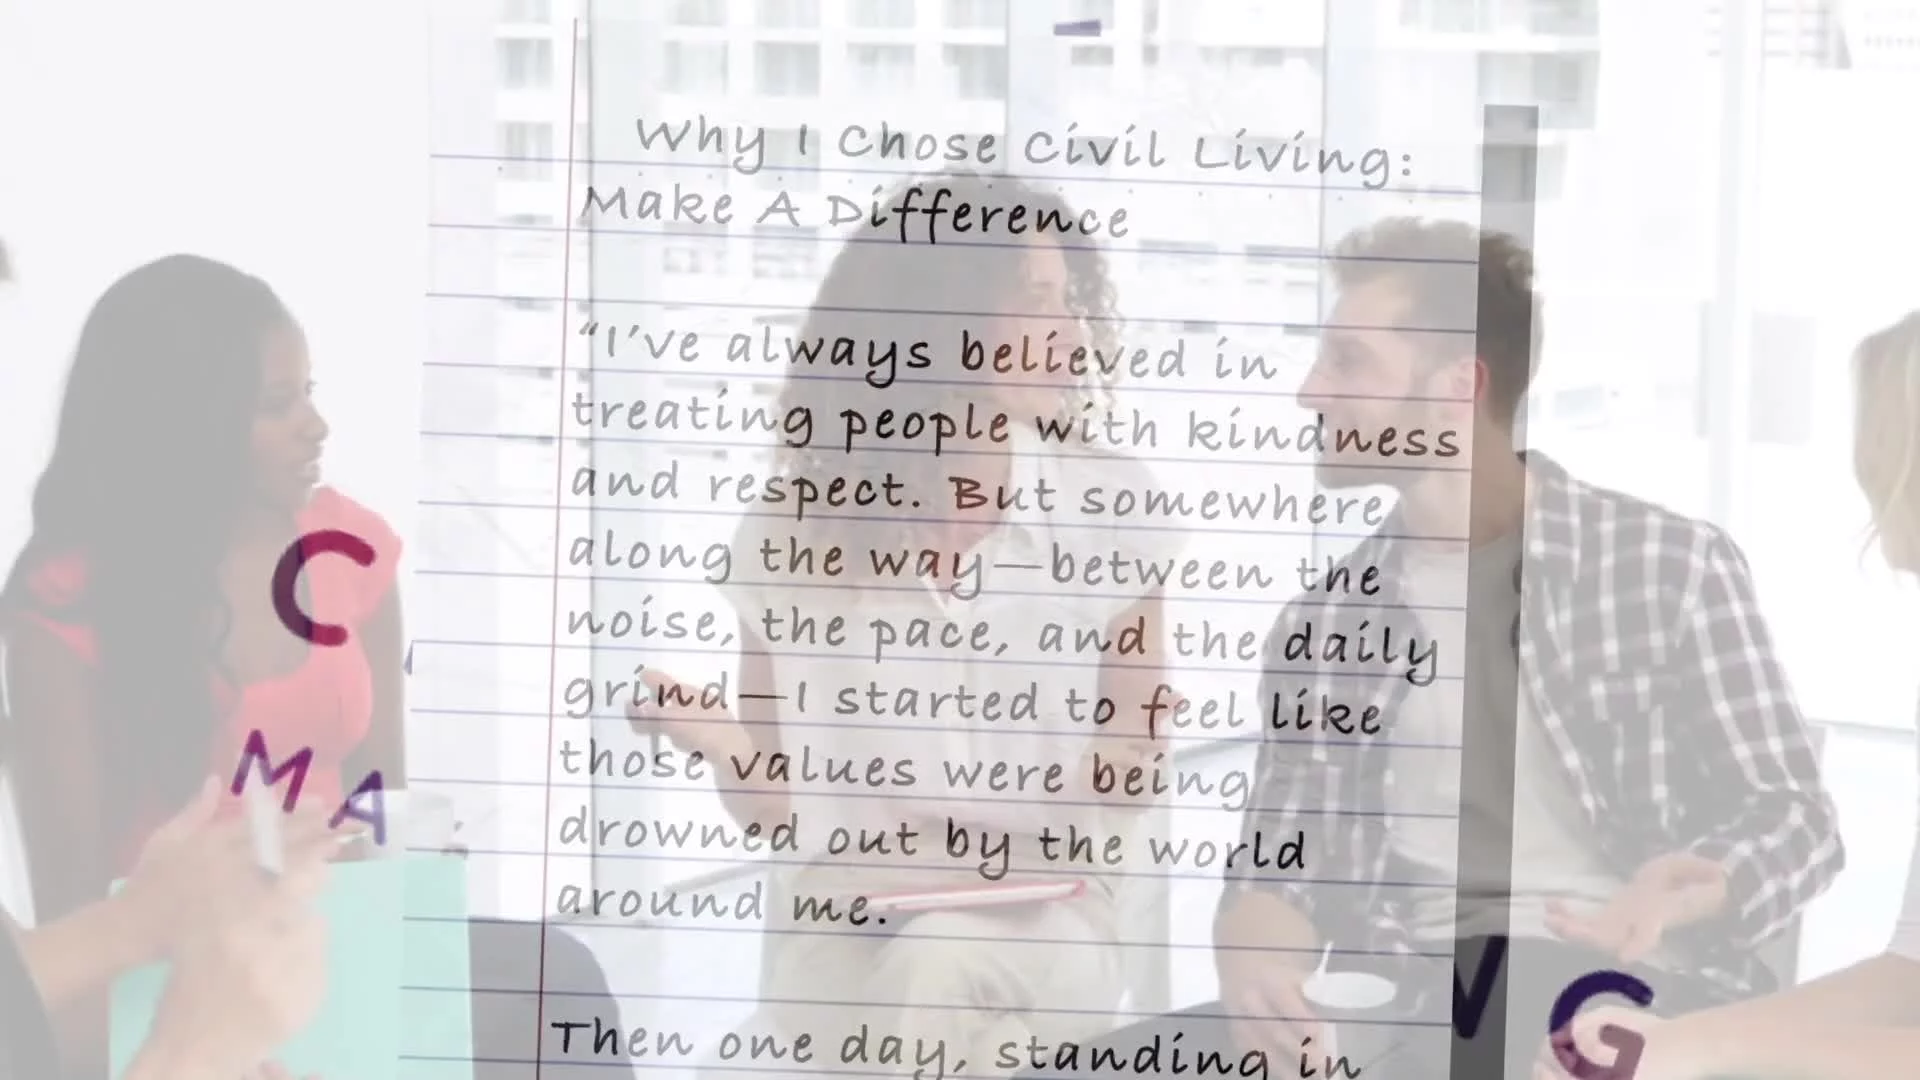 Why I Chose Civil Living:
Make A Difference
“I’ve always believed in
treating people with kindness
and respect. But somewhere
along the way—between the
noise, the pace, and the daily
grind—I started to feel like
those values were being
drowned out by the world
around me.
Then one day, standing in
C
M A
V G